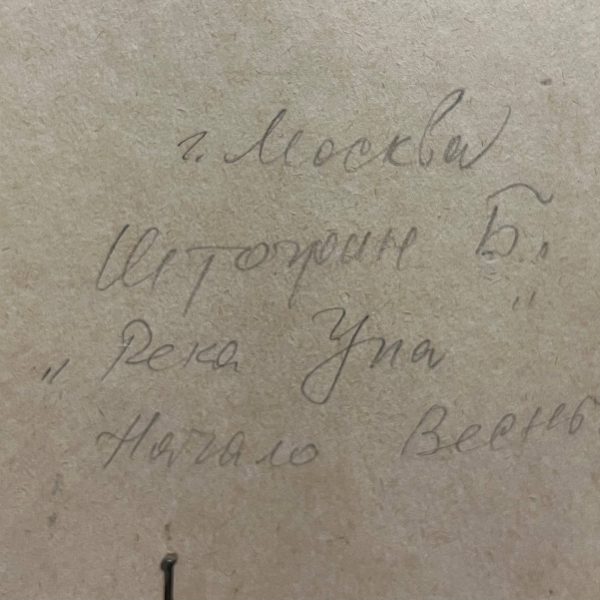 г. Москва
Штогрин Б.
„Река Упа"
Начало Весны